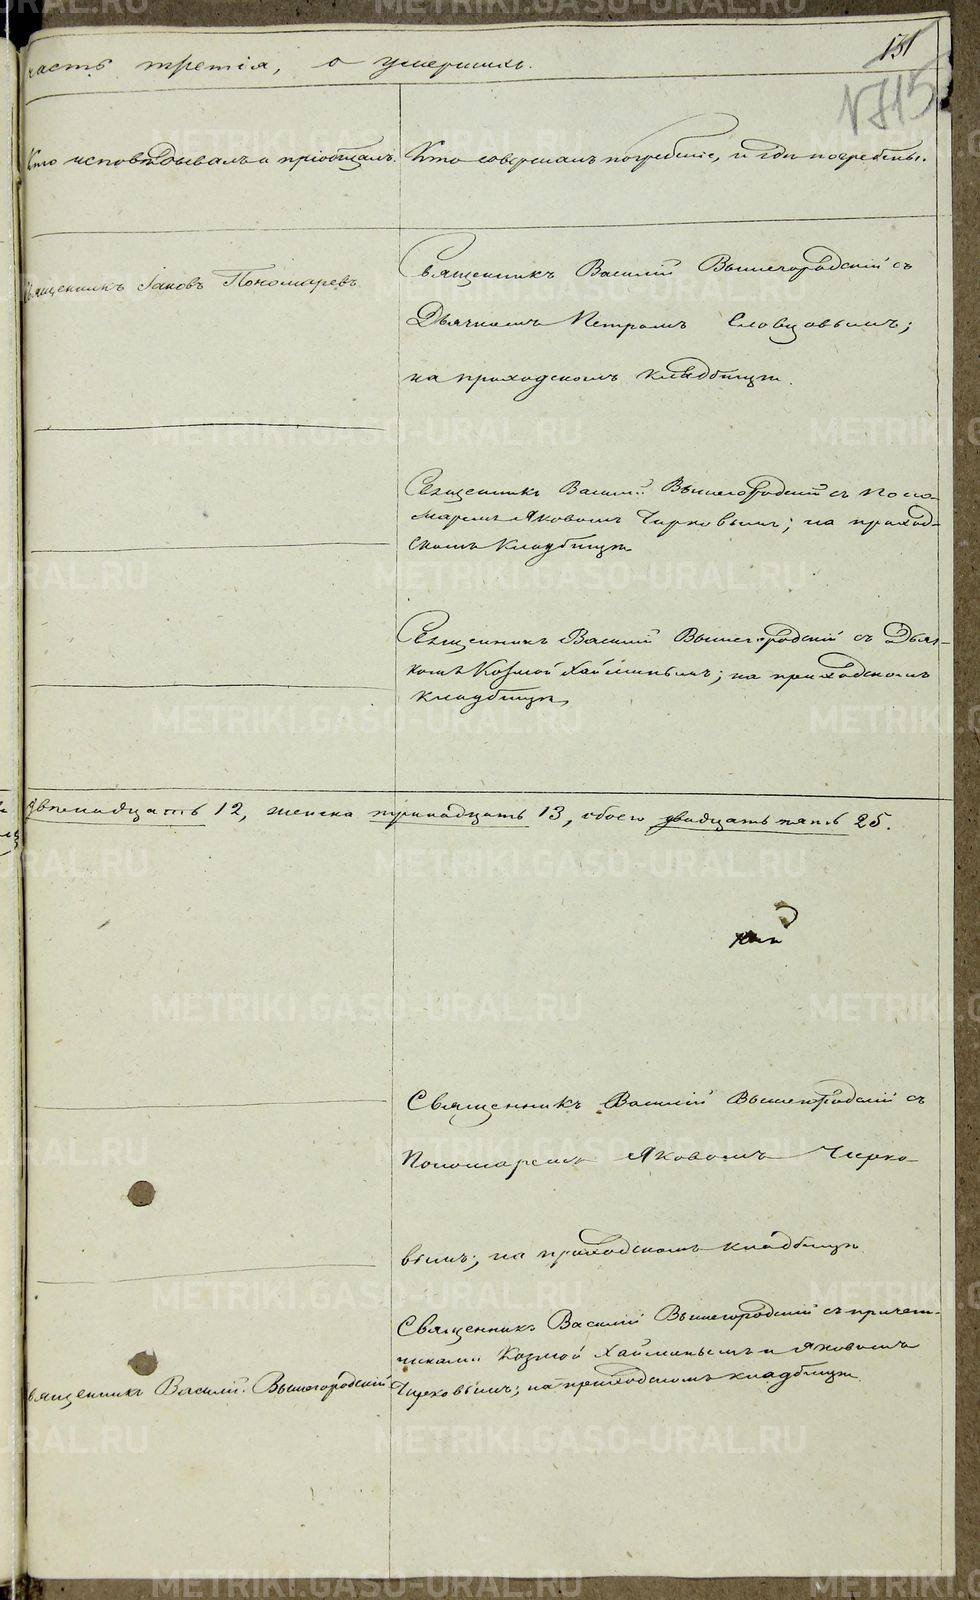 131
часть третія, о умершихъ.
N715
Кто исповѣдывалъ и пріобщалъ.
Кто совершалъ погребеніе, и гдѣ погребены.
Священникъ Іаковъ Пономаревъ
Священникъ Василій Вышегородскій съ
Дьячкомъ Петромъ Словцовымъ;
на приходскомъ кладбищѣ.
Священникъ Василій Вышегородскій съ Поно-
маремъ Яковомъ Чирковымъ; на приход-
скомъ кладбищѣ
Священникъ Василій Вышегородскій съ Дьяч-
комъ Козмой Хайминымъ; на приходскомъ
кладбищѣ
двѣнадцать 12, женска тринадцать 13, обоего двадцать пять 25.
Священникъ Василій Вышегородскій съ
Пономаремъ Яковомъ Чирко-
вымъ; на приходскомъ кладбищѣ
Священникъ Василій Вышегородскій
Священникъ Василій Вышегородскій съ причет-
никами Козмой Хайминымъ и Яковомъ
Чирковымъ; на приходскомъ кладбищѣ.
METRIKI.GASO-URAL.RU